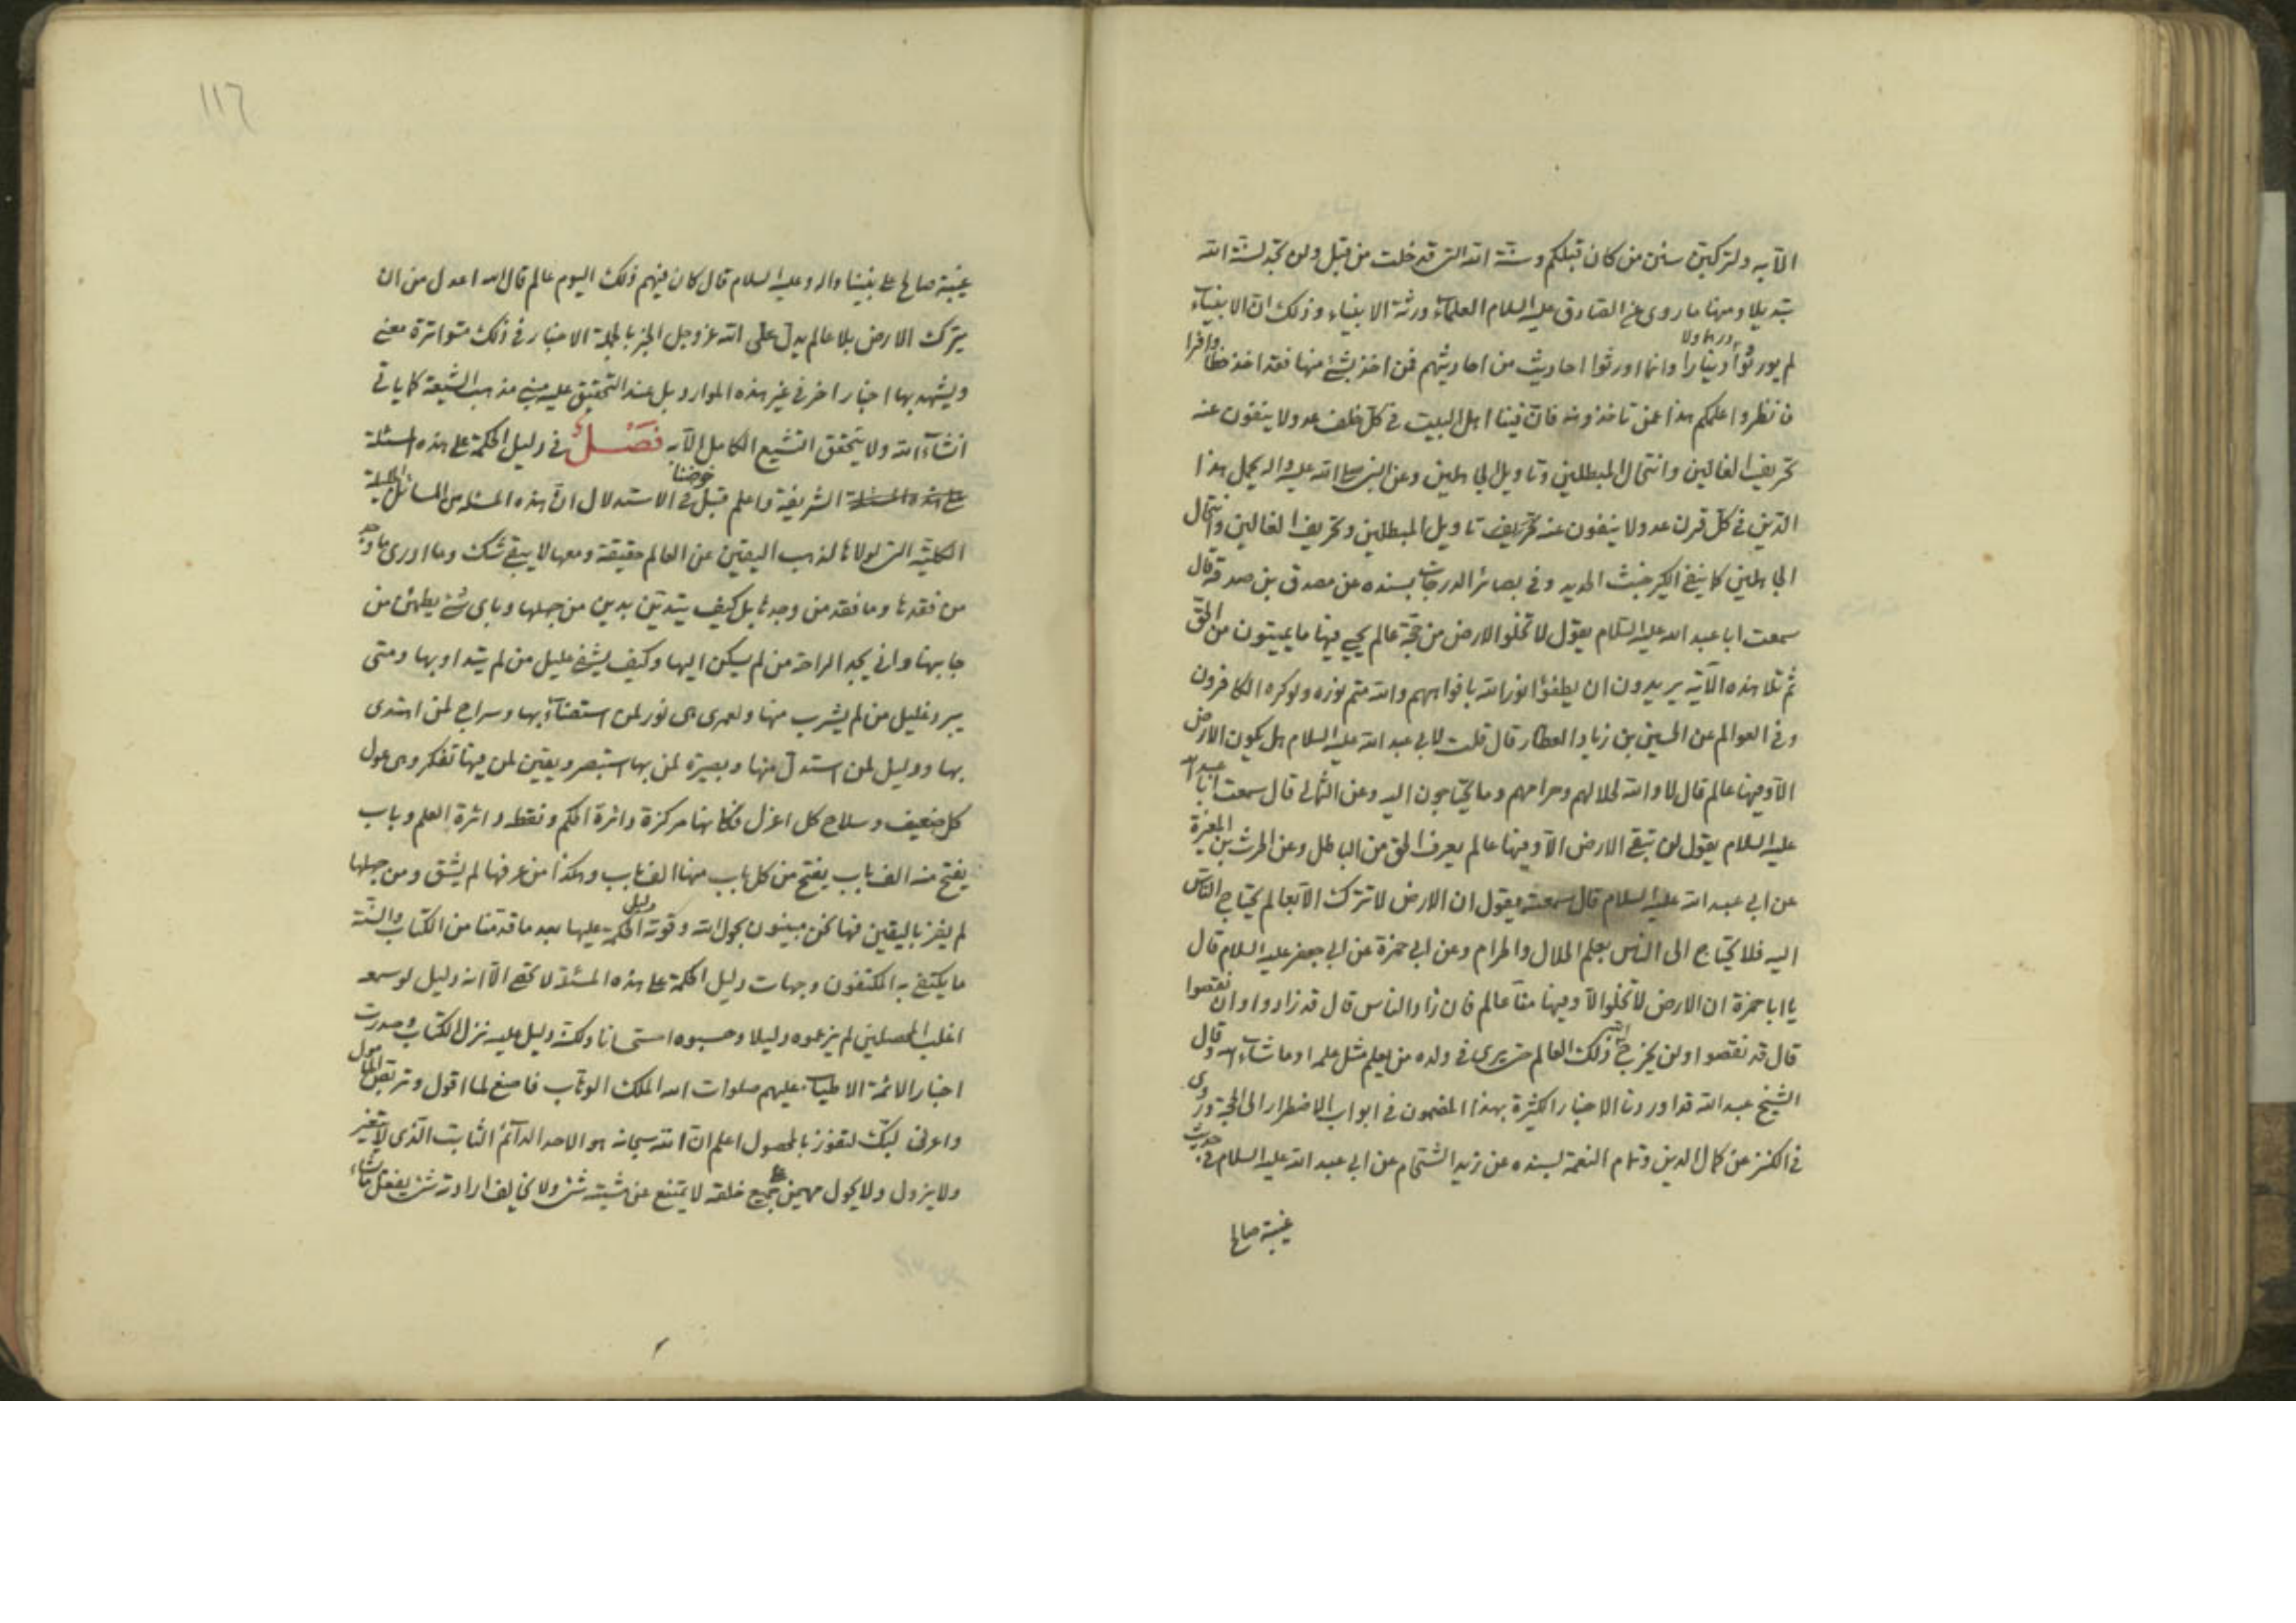 الآيه ولتركبن سنن من كان قبلكم وسنّة الله التى قد خلت من قبل ولن تجد لسنّة الله
تبديلا ومنها ما روى عن الصادق عليه السلام العلماء ورثة الانبياء وذلك ان الانبياء
لم يورثوا درهما ولا دينارا وانما اورثوا احاديث من احاديثهم فمن اخذ بشئ منها فقد اخذ حظا وافرا
فانظروا علمكم هذا عمّن تأخذونه فان فينا اهل البيت فى كلّ خلف عدولا ينفون عنه
تحريف الغالين وانتحال المبطلين وتاويل الجاهلين وعن النبى صلى الله عليه واله يحمل هذا
الدّين فى كلّ قرن عدولا ينفون عنه تاويل المبطلين وتحريف الغالين وانتحال
الجاهلين كما ينفى الكير خبث الحديد وفى بصائر الدرجات بسنده عن مصدق بن صدقة قال
سمعت ابا عبد الله عليه السّلام يقول لا تخلو الارض من حجّة عالم يحيى فيها ما يميتون من الحقّ
ثم تلا هذه الآية يريدون ان يطفؤا نور الله بافواههم والله متم نوره ولو كره الكافرون
وفى العوالم عن الحسين بن زياد العطار قال قلت لابى عبد الله عليه السلام هل يكون الارض
الّا وفيها عالم قال لا والله لحلالهم وحرامهم وما يحتاجون اليه وعن الثمالى قال سمعت ابا عبد الله
عليه السلام يقول لن تبقى الارض الّا وفيها عالم يعرف الحق من الباطل وعن الحرث بن المغيرة
عن ابى عبد الله عليه السلام قال سمعته يقول ان الارض لا تترك الّا بعالم يحتاج النّاس
اليه فلا يحتاج الى النّاس يعلم الحلال والحرام وعن ابى حمزة عن ابى جعفر عليه السلام قال
يا ابا حمزة ان الارض لا تخلو الّا وفيها منّا عالم فان زاد الناس قال قد زادوا وان نقصوا
قال قد نقصوا ولن يخرج الله ذلك العالم حتى يرى فى ولده من يعلم مثل علمه او ما شاء الله وقال
الشيخ عبد الله قد اوردنا الاخبار الكثيرة بهذا المضمون فى ابواب الاضطرار الى الحجة وروى
فى الكنز عن كمال الدين وتمام النعمة بسنده عن زيد الشحّام عن ابى عبد الله عليه السلام فى حديث
غيبة صالح
١١٦
غيبة صالح على نبينا واله وعليه السلام قال كان فيهم ذلك اليوم عالم قال الله اعدل من ان
يترك الارض بلا عالم يدلّ على الله عز وجل الخبر بالجملة الاخبار فى ذلك متواترة معنى
ويشهد بها اخبار اخر فى غير هذه الموارد بل عند التحقيق عليه مبنى مذهب الشيعة كما ياتى
انشآء الله ولا يتحقق التشيع الكامل الّا به فَصْلٌ فى دليل الحكمة على هذه المسئلة
الشريفة واعلم قبل خوضنا فى الاستدلال انّ هذه المسئله من المسائل الجليلة
الكليّة التى لولاها لذهب اليقين عن العالم حقيقة ومعها لا يبقى شك وما ادرى ما وجد
من فقدها وما فقد من وجدها بل كيف يتديّن بدين من جهلها وباى شئ يطمئن من
جانبها وانى يجد الراحة من لم يسكن اليها وكيف يشفى عليل من لم يتداو بها ومتى
يبرد غليل من لم يشرب منها ولعمرى هى نور لمن استضاء بها وسراج لمن اهتدى
بها ودليل لمن استدلّ منها وبصيرة لمن بها استبصر ويقين لمن فيها تفكر وهى عول
كل ضعيف وسلاح كل اعزل فكانها مركزة دائرة الحكم ونقطة دائرة العلم وباب
يفتح منه الف باب يفتح من كل باب منها الف باب وهكذا من عرفها لم يشق ومن جهلها
لم يفز باليقين فها نحن مبينون بحول الله وقوته دليل الحكمة عليها بعد ما قدّمنا من الكتاب والسّنة
ما يكتفى به المكتفون وجهات دليل الحكمة على هذه المسئلة لا تحصى الّا انه دليل لو سمعه
اغلب المحصلين لم يزعموه دليلا وحسبوه استحسانا ولكنه دليل عليه نزل الكتاب وصدرت
اخبار الائمّة الاطياب عليهم صلوات الله الملك الوهّاب فاصغ لما اقول وتربّص للمأمول
واعرنى لبّك لتفوز بالمحصول اعلم انّ الله سبحانه هو الاحد الدآئم الثابت الّذى لا يتغير
ولا يزول ولا يحول مهيمن على جميع خلقه لا يمتنع عن مشيته شئ ولا يخالف ارادته شئ يفعل ما يشاء